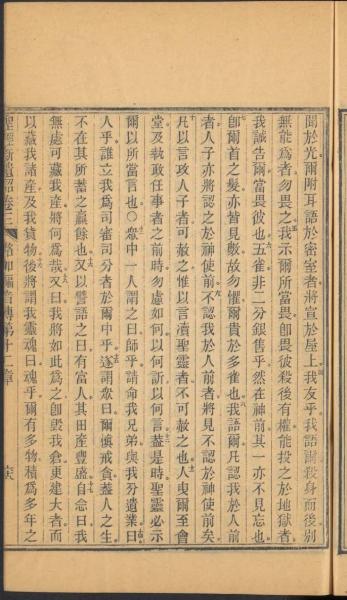 聞於光爾附耳語於密室者將宣於屋上我友乎我語爾殺身而後別
無能爲者勿畏之五我示爾所當畏卽畏彼殺後有權能投之於地獄者
我誠吿爾當畏彼也六五雀非二分銀售乎然在神前其一亦不見忘也
七卽爾首之髮亦皆見數故勿懼爾貴於多雀也八我語爾凡認我於人前
者人子亦將認之於神使前九不認我於人前者將見不認於神使前矣
十凡以言攻人子者可赦之惟以言瀆聖靈者不可赦之也十一人曳爾至會
堂及執政任事者之前時勿慮如何以何訴以何言十二蓋是時聖靈必示
爾以所當言也○十三眾中一人謂之曰師乎請命我兄弟與我分遺業十四曰
人乎誰立我爲司審司分者於爾中乎十五遂謂眾曰爾愼戒貪蓋人之生
不在其所蓄之贏餘也十六又以譬語之曰有富人其田產豐盛十七自忌曰我
無處可藏我產將何爲哉十八又曰我將如此爲之卽毀我倉更建大者而
以藏我諸產及我貨物十九後將謂我靈魂曰魂乎爾有多物積爲多年之
聖經新遺詔卷三 路加福音傳第十二章 六